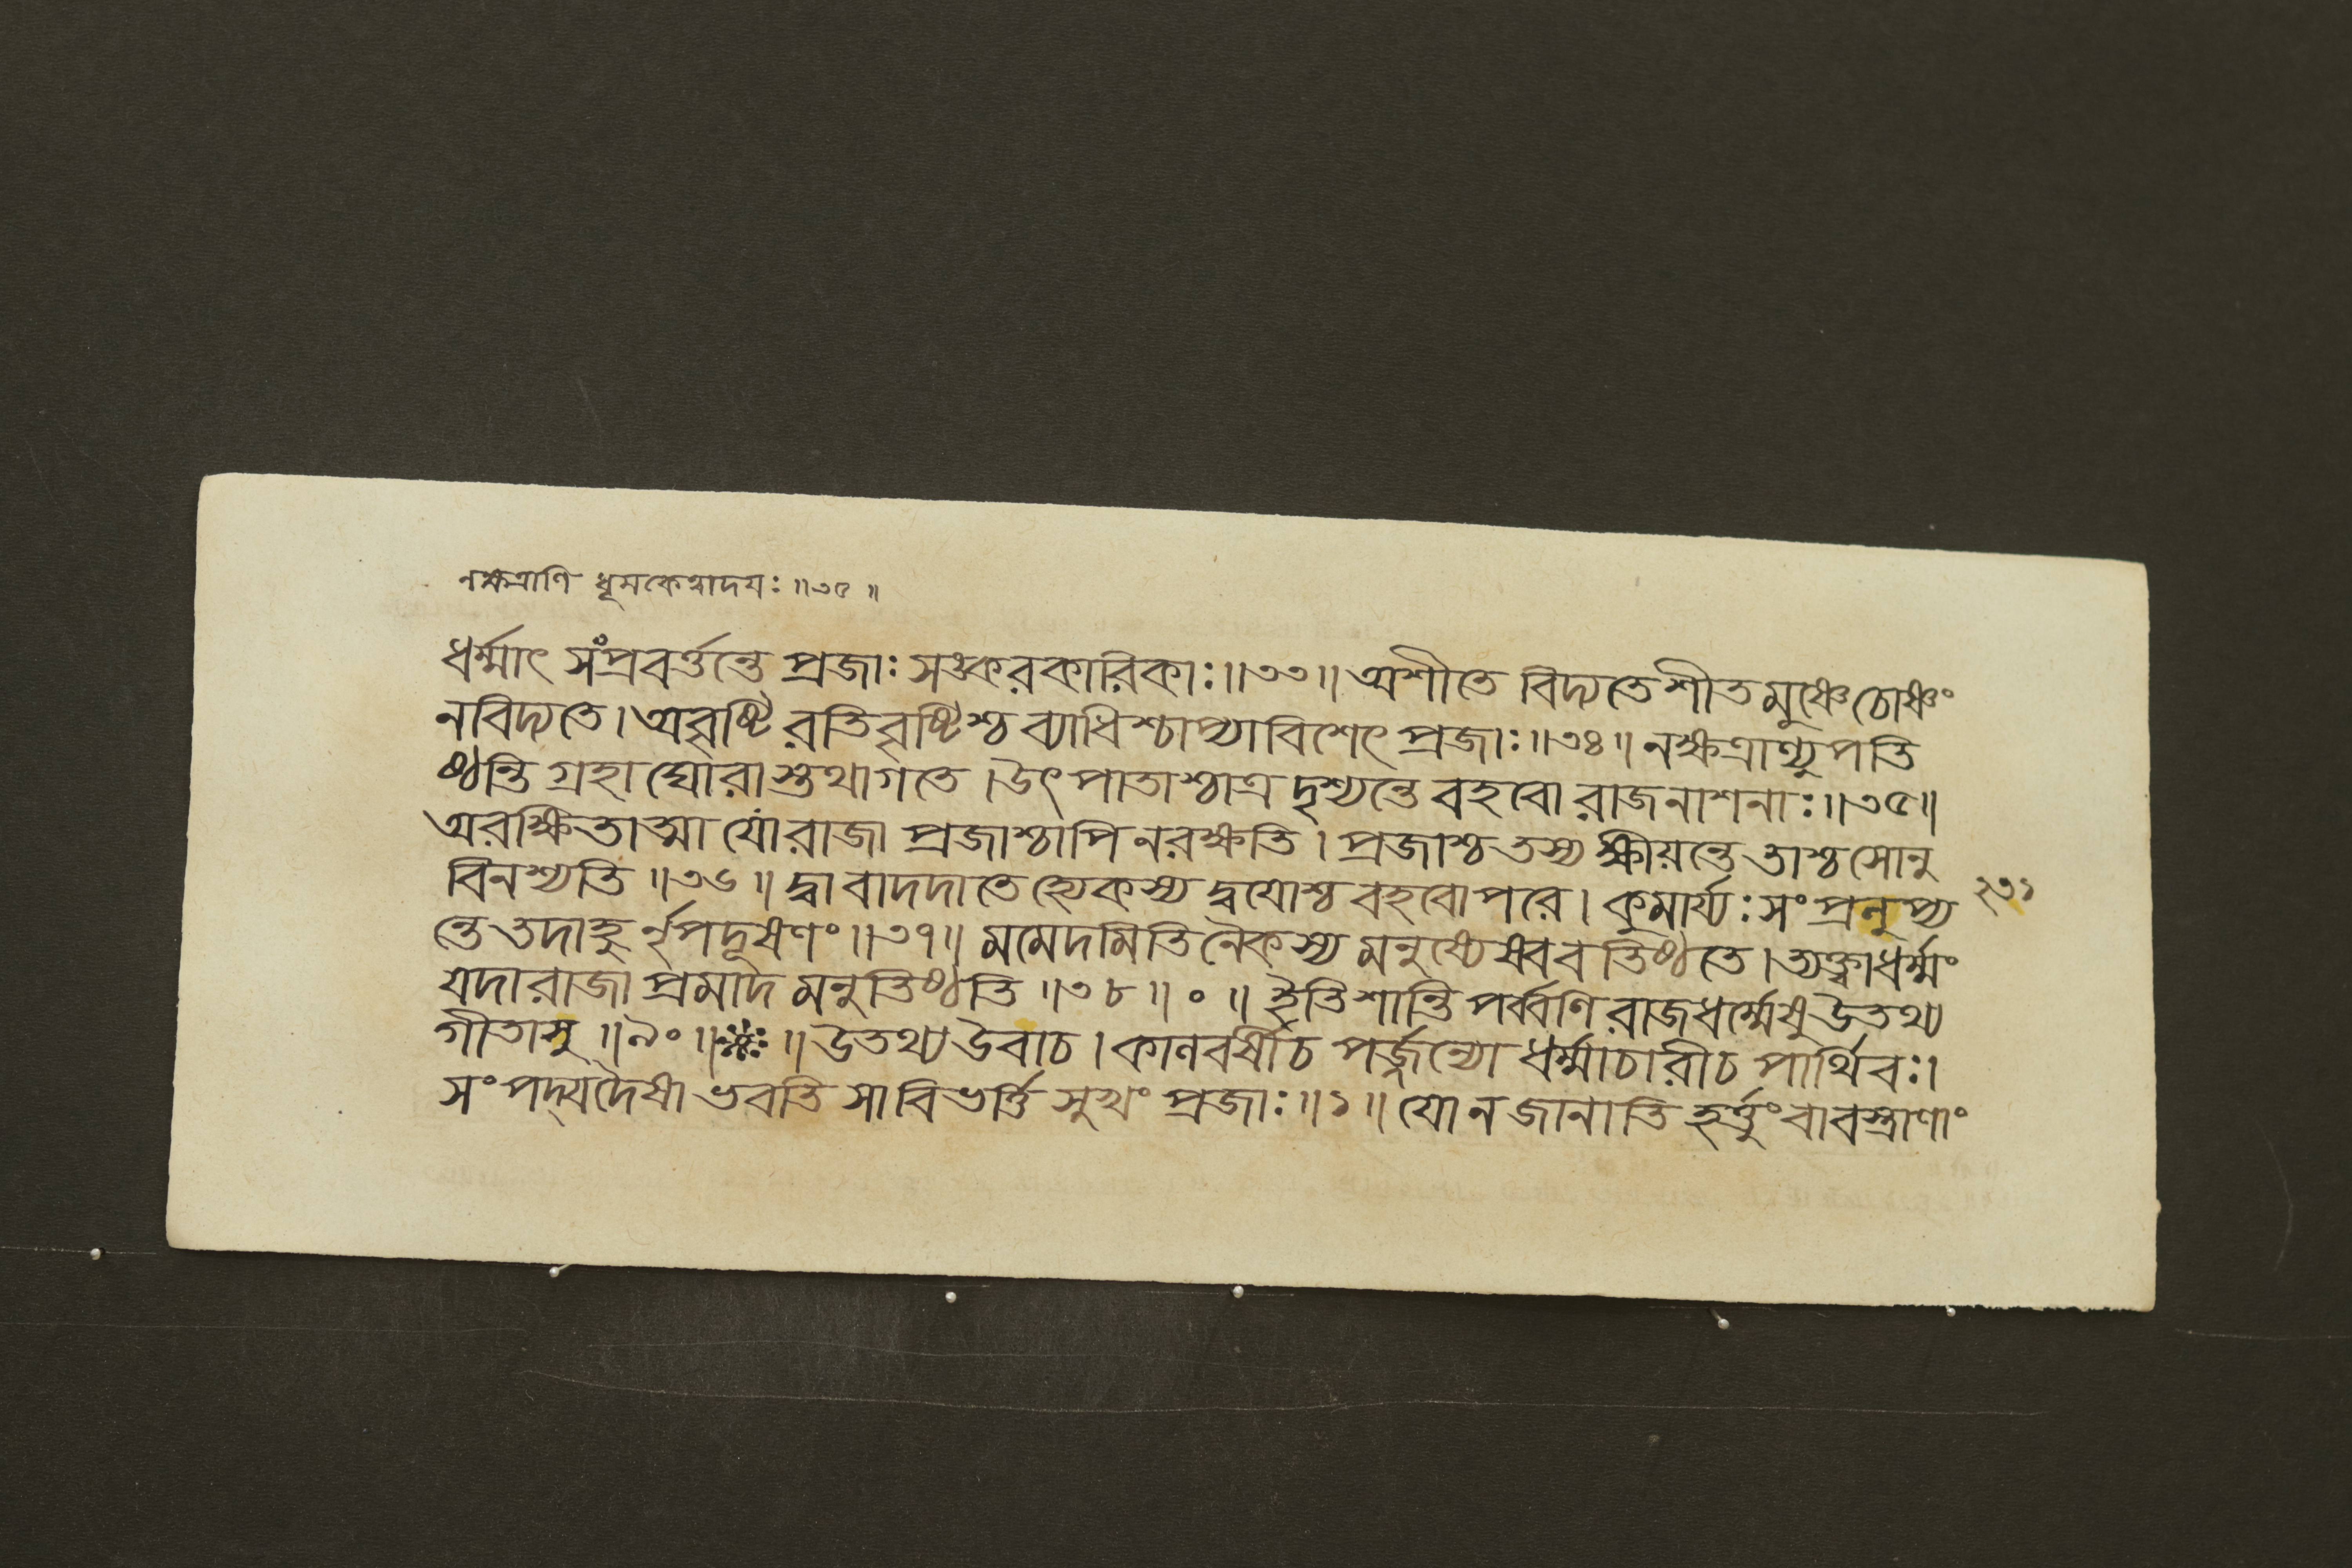 নক্ষত্রাণি ধূমকেত্বাদয়ঃ ॥৩৫॥
ধর্ম্মাৎ সংপ্রবর্ত্তন্তে প্রজাঃ সঙ্করকারিকাঃ॥৩৩॥ অশীতে বিদ্যতে শীতমুষ্ণে চোষ্ণং
নবিদ্যতে। অবৃষ্টিরতিবৃষ্টিশ্চ ব্যাধিশ্চাপ্যাবিশেৎ প্রজাঃ॥৩৪॥ নক্ষত্রাণ্যুপতি
ষ্ঠন্তি গ্রহা ঘোরাস্তথাগতে। উৎপাতাশ্চাত্র দৃশ্যন্তে বহবো রাজনাশনাঃ॥৩৫॥
অরক্ষিতাত্মা যো রাজা প্রজাশ্চাপি নরক্ষতি। প্রজাশ্চ তস্য ক্ষীয়ন্তে তাশ্চ সোনু
বিনশ্যতি ॥৩৬॥ দ্বাবাদদাতে হ্যেকস্য দ্বয়োশ্চ বহবোপরে। কুমার্য্যঃ সংপ্রলুপ্য
২৩১
ন্তে তদাহুর্নৃপদূষণং॥৩৭॥ মমেদমিতি নৈকস্য মনুষ্যেষ্ববতিষ্ঠতে। ত্যক্ত্বাধর্ম্মং
যদারাজা প্রমাদমনুতিষ্ঠতি ॥৩৮॥ ০ ॥ ইতি শান্তি পর্ব্বণি রাজধর্ম্মেষু উতথ্য
গীতাসু ॥৯০॥ ॥ উতথ্য উবাচ। কালবর্ষীচ পর্জ্জন্যো ধর্ম্মাচারীচ পার্থিবঃ।
সংপদ্যদৈষা ভবতি সা বিভর্ত্তি সুখং প্রজাঃ॥১॥ যো ন জানাতি হর্ত্তুং বাবস্ত্রাণাং